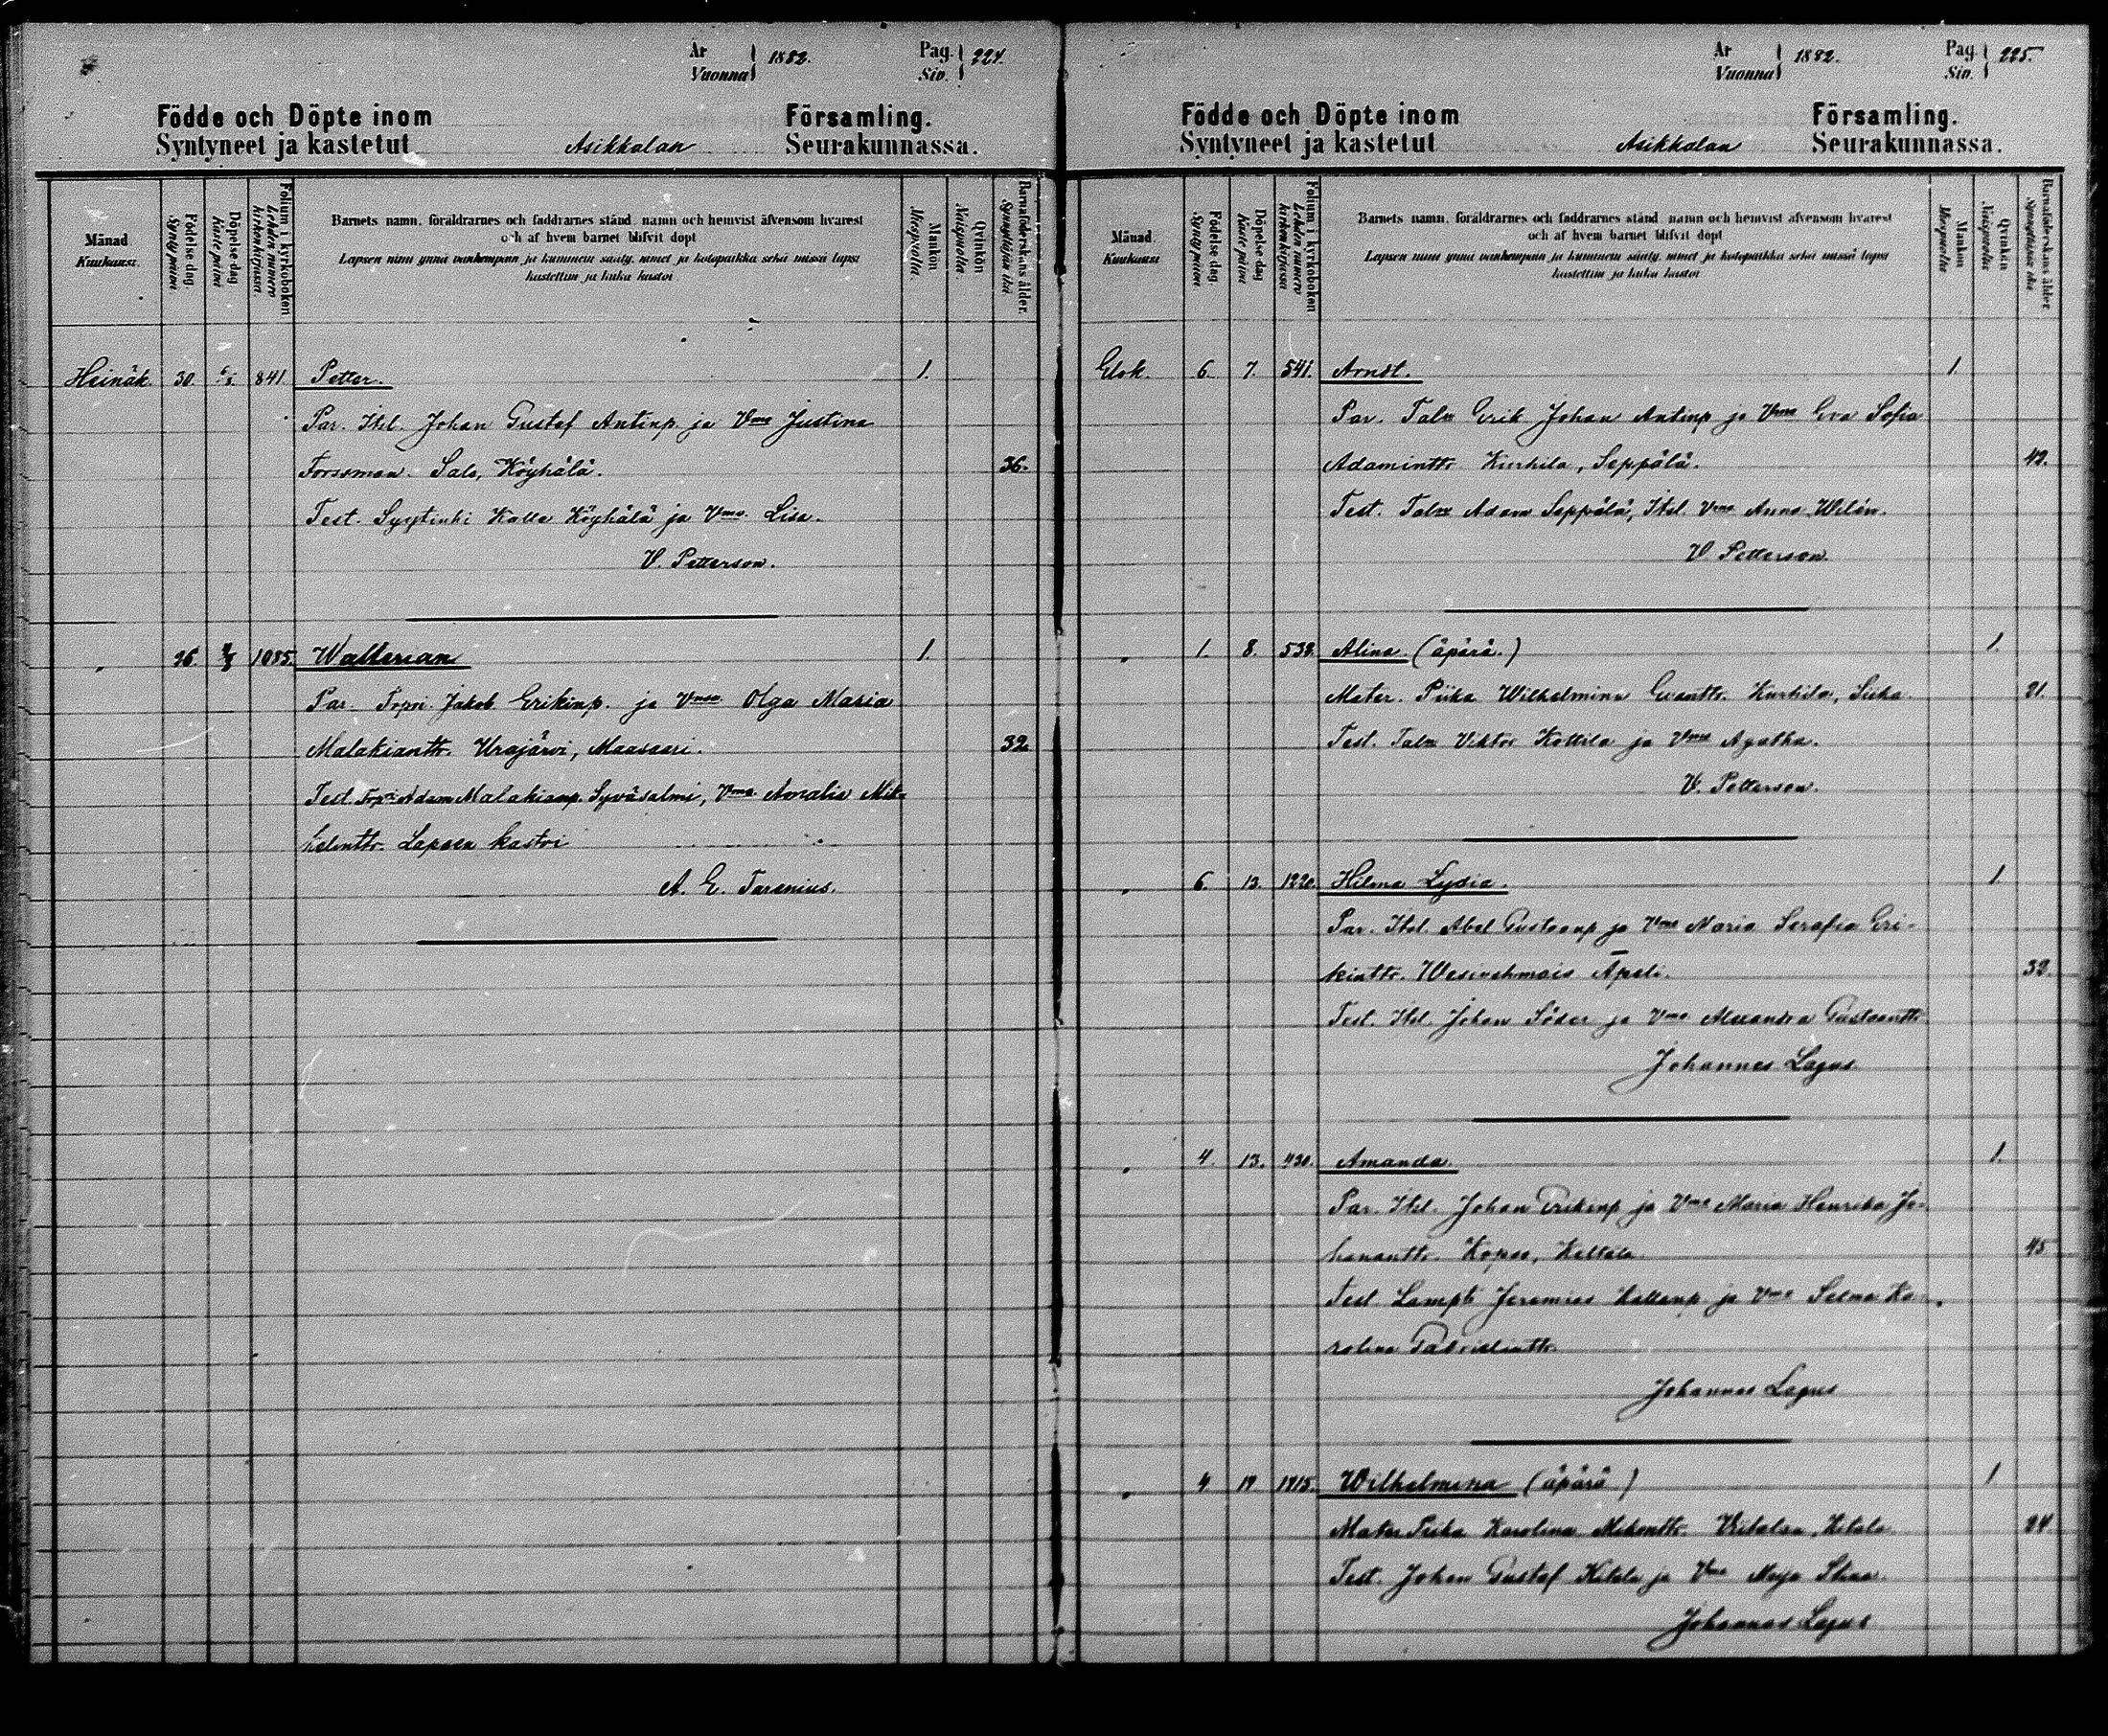 År
Vuonna
1882.
Pag.
Siv.
224.
Födde och Döpte inom
Församling.
Syntyneet ja kastetut
Asikkalan
Seurakunnassa.
Månad
Kuukausi.
Födelse dag.
Synty päivä.
Döpelse dag
Kaste päivä
Folium i kyrkoboken
Lehden numero kirkonkirjassa.
Barnets namn, föräldrarnes och faddrarnes stånd, namn och hemvist äfvensom hvarest
och af hvem barnet blifvit döpt
Lapsen nimi ynnä vanhempain ja kummein sääty, nimet ja kotopaikka sekä missä lapsi
kastettiin ja kuka kastoi
Mankön
Miespuolia.
Qvinkön
Naispuolia
Barnaföderskans ålder.
Synnyttäjän ikä.
Heinäk. 30. 6/8 841. Petter. 1.
Par. Itsl. Johan Gustaf Antinp. ja Vmo Justina
Forssman. Salo, Köyhälä. 36.
Test. Syytinki Kalle Köyhälä ja Vmo Lisa.
V. Petterson.
" 26. 1085. Walterian 1.
Par. Torpri. Jakob Erikinp. ja Vmo Olga Maria
Malakiantr. Urajärvi, Maasaari. 32.
Test. Adam Malakianp. Syväsalmi, Vmo Amalia Mik-
helintr. Lapsen kastoi
A. E. Tarenius.
År
Vuonna
1882.
Pag.
Siv.
225.
Födde och Döpte inom
Församling.
Syntyneet ja kastetut
Asikkalan
Seurakunnassa.
Månad.
Kuukausi
Födelse dag.
Synty päivä.
Döpelse dag
Kaste päivä
Folium i kyrkoboken
Lehden numero kirkonkirjassa
Barnets namn, föräldrarnes och faddrarnes stånd, namn och hemvist äfvensom hvarest
och af hvem barnet blifvit döpt
Lapsen nimi ynnä vanhempain ja kummein sääty, nimet ja kotopaikka sekä missä lapsi
kastettiin ja kuka kastoi
Mankön
Miespuolia
Qvinkön
Naispuolia
Barnaföderskans ålder
Synnyttäjän ikä
Elok. 6. 7. 541. Arndt. 1.
Par. Taln Erik Johan Antinp ja Vmo Eva Sofia
Adamintr. Kurhila, Seppälä. 42.
Test. Taln Adam Seppälä, Itsl. Vmo Anna Welin.
V. Petterson.
" 1. 8. 538. Alina. (äpärä.) 1.
Mater. Piika Wilhelmina Evantr. Kurhila, Suka. 21.
Test. Taln Viktor Kottila ja Vmo Agatha.
V. Petterson.
" 6. 13. 1220. Hilma Lydia. 1.
Par. Itsl. Abel Gustaanp ja Vmo Maria Serafia Eri-
kintr. Wesivehmais Äpeli. 32.
Test. Itsl. Johan Söder ja Vmo Alexandra Gustaantr.
Johannes Lagus
" 4. 13. 430. Amanda. 1.
Par. Itsl. Johan Erikinp ja Vmo Maria Henrika Jo-
hanantr. Kopsu, Keltala. 45
Test. Lampt. Jeremias Kallenp ja Vmo Selma Ka-
rolina Gabrielintr.
Johannes Lagus
" 4 19 1215. Wilhelmina (äpärä) 1
Mater Piika Karolina Mikontr. Kitala 24
Test. Johan Gustaf Kitala ja Vmo Maja Stina.
Johannes Lagus